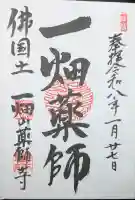 奉拝 令和八年一月廿七日
一畑薬師
佛国土 一畑山薬師寺